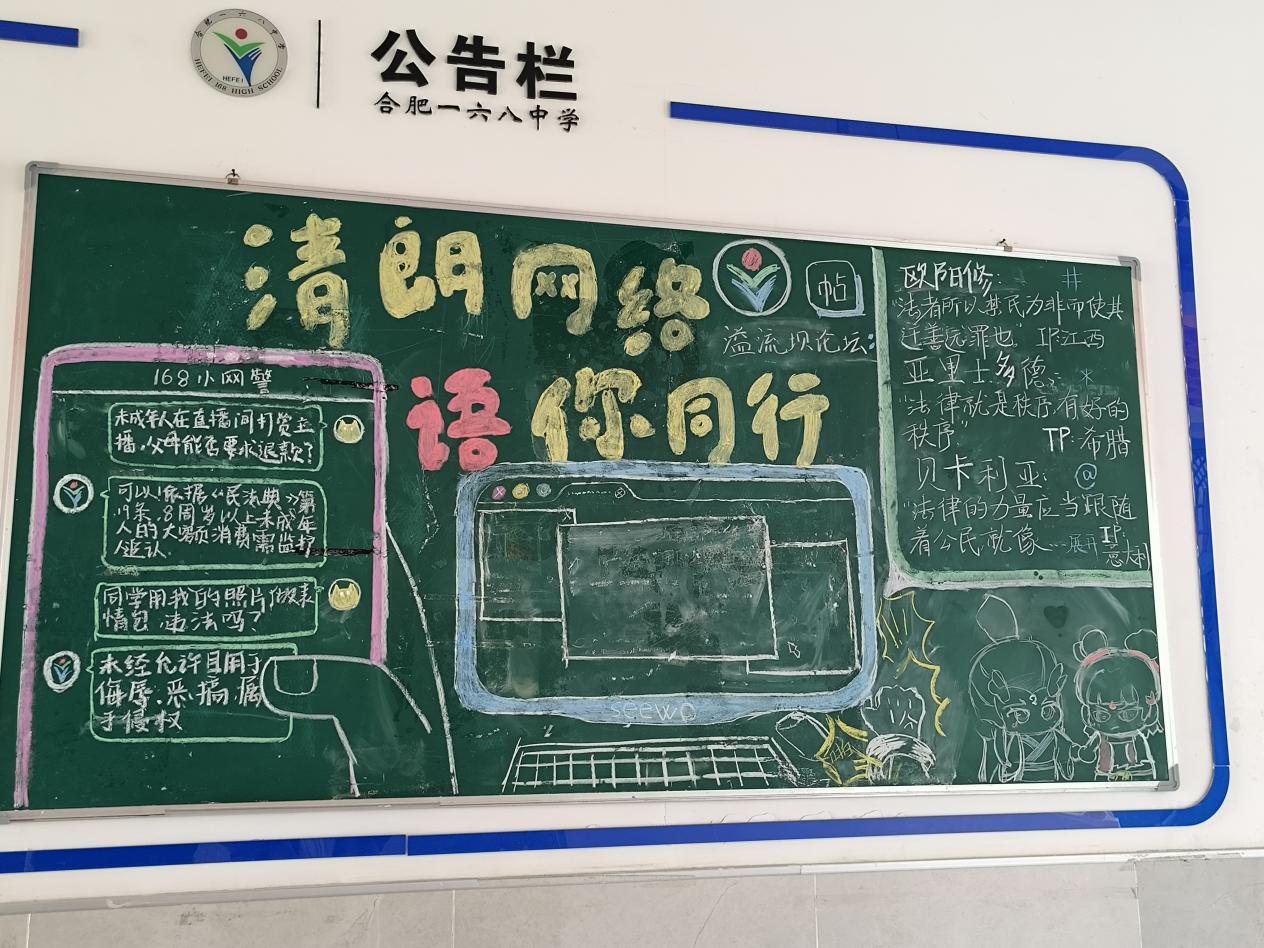 合肥一六八中学
HEFEI 168 HIGH SCHOOL
HEFEI
公告栏
合肥一六八中学
清朗网络
语你同行
帖
溢流坝论坛:
168小网警
未成年人在直播间打赏主
播,父母能否要求退款?
可以!依据《民法典》第
19条,8周岁以上未成年
人的大额消费需监护
人追认.
同学用我的照片做表
情包,违法吗?
未经允许且用于
侮辱、恶搞,属
于侵权
seewo
欧阳修: #
"法者所以禁民为非而使其
迁善远罪也" IP:江西
亚里士多德: *
"法律就是秩序,有好的
秩序" IP:希腊
贝卡利亚: @
"法律的力量应当跟随
着公民就像...展开 IP:
意大利